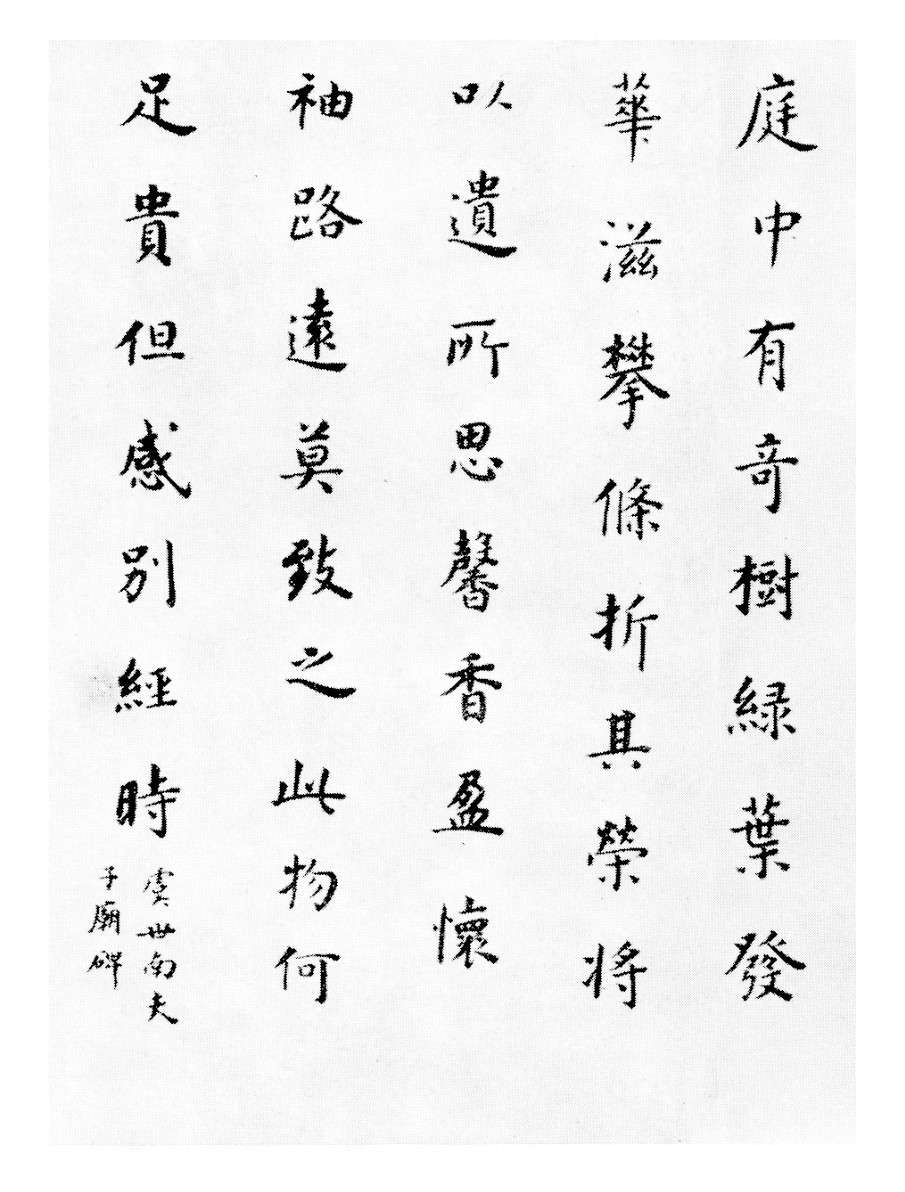 庭中有奇樹緑葉發
華滋攀條折其榮将
以遺所思馨香盈懷
袖路遠莫致之此物何
足貴但感别經時
虞世南夫
子廟碑